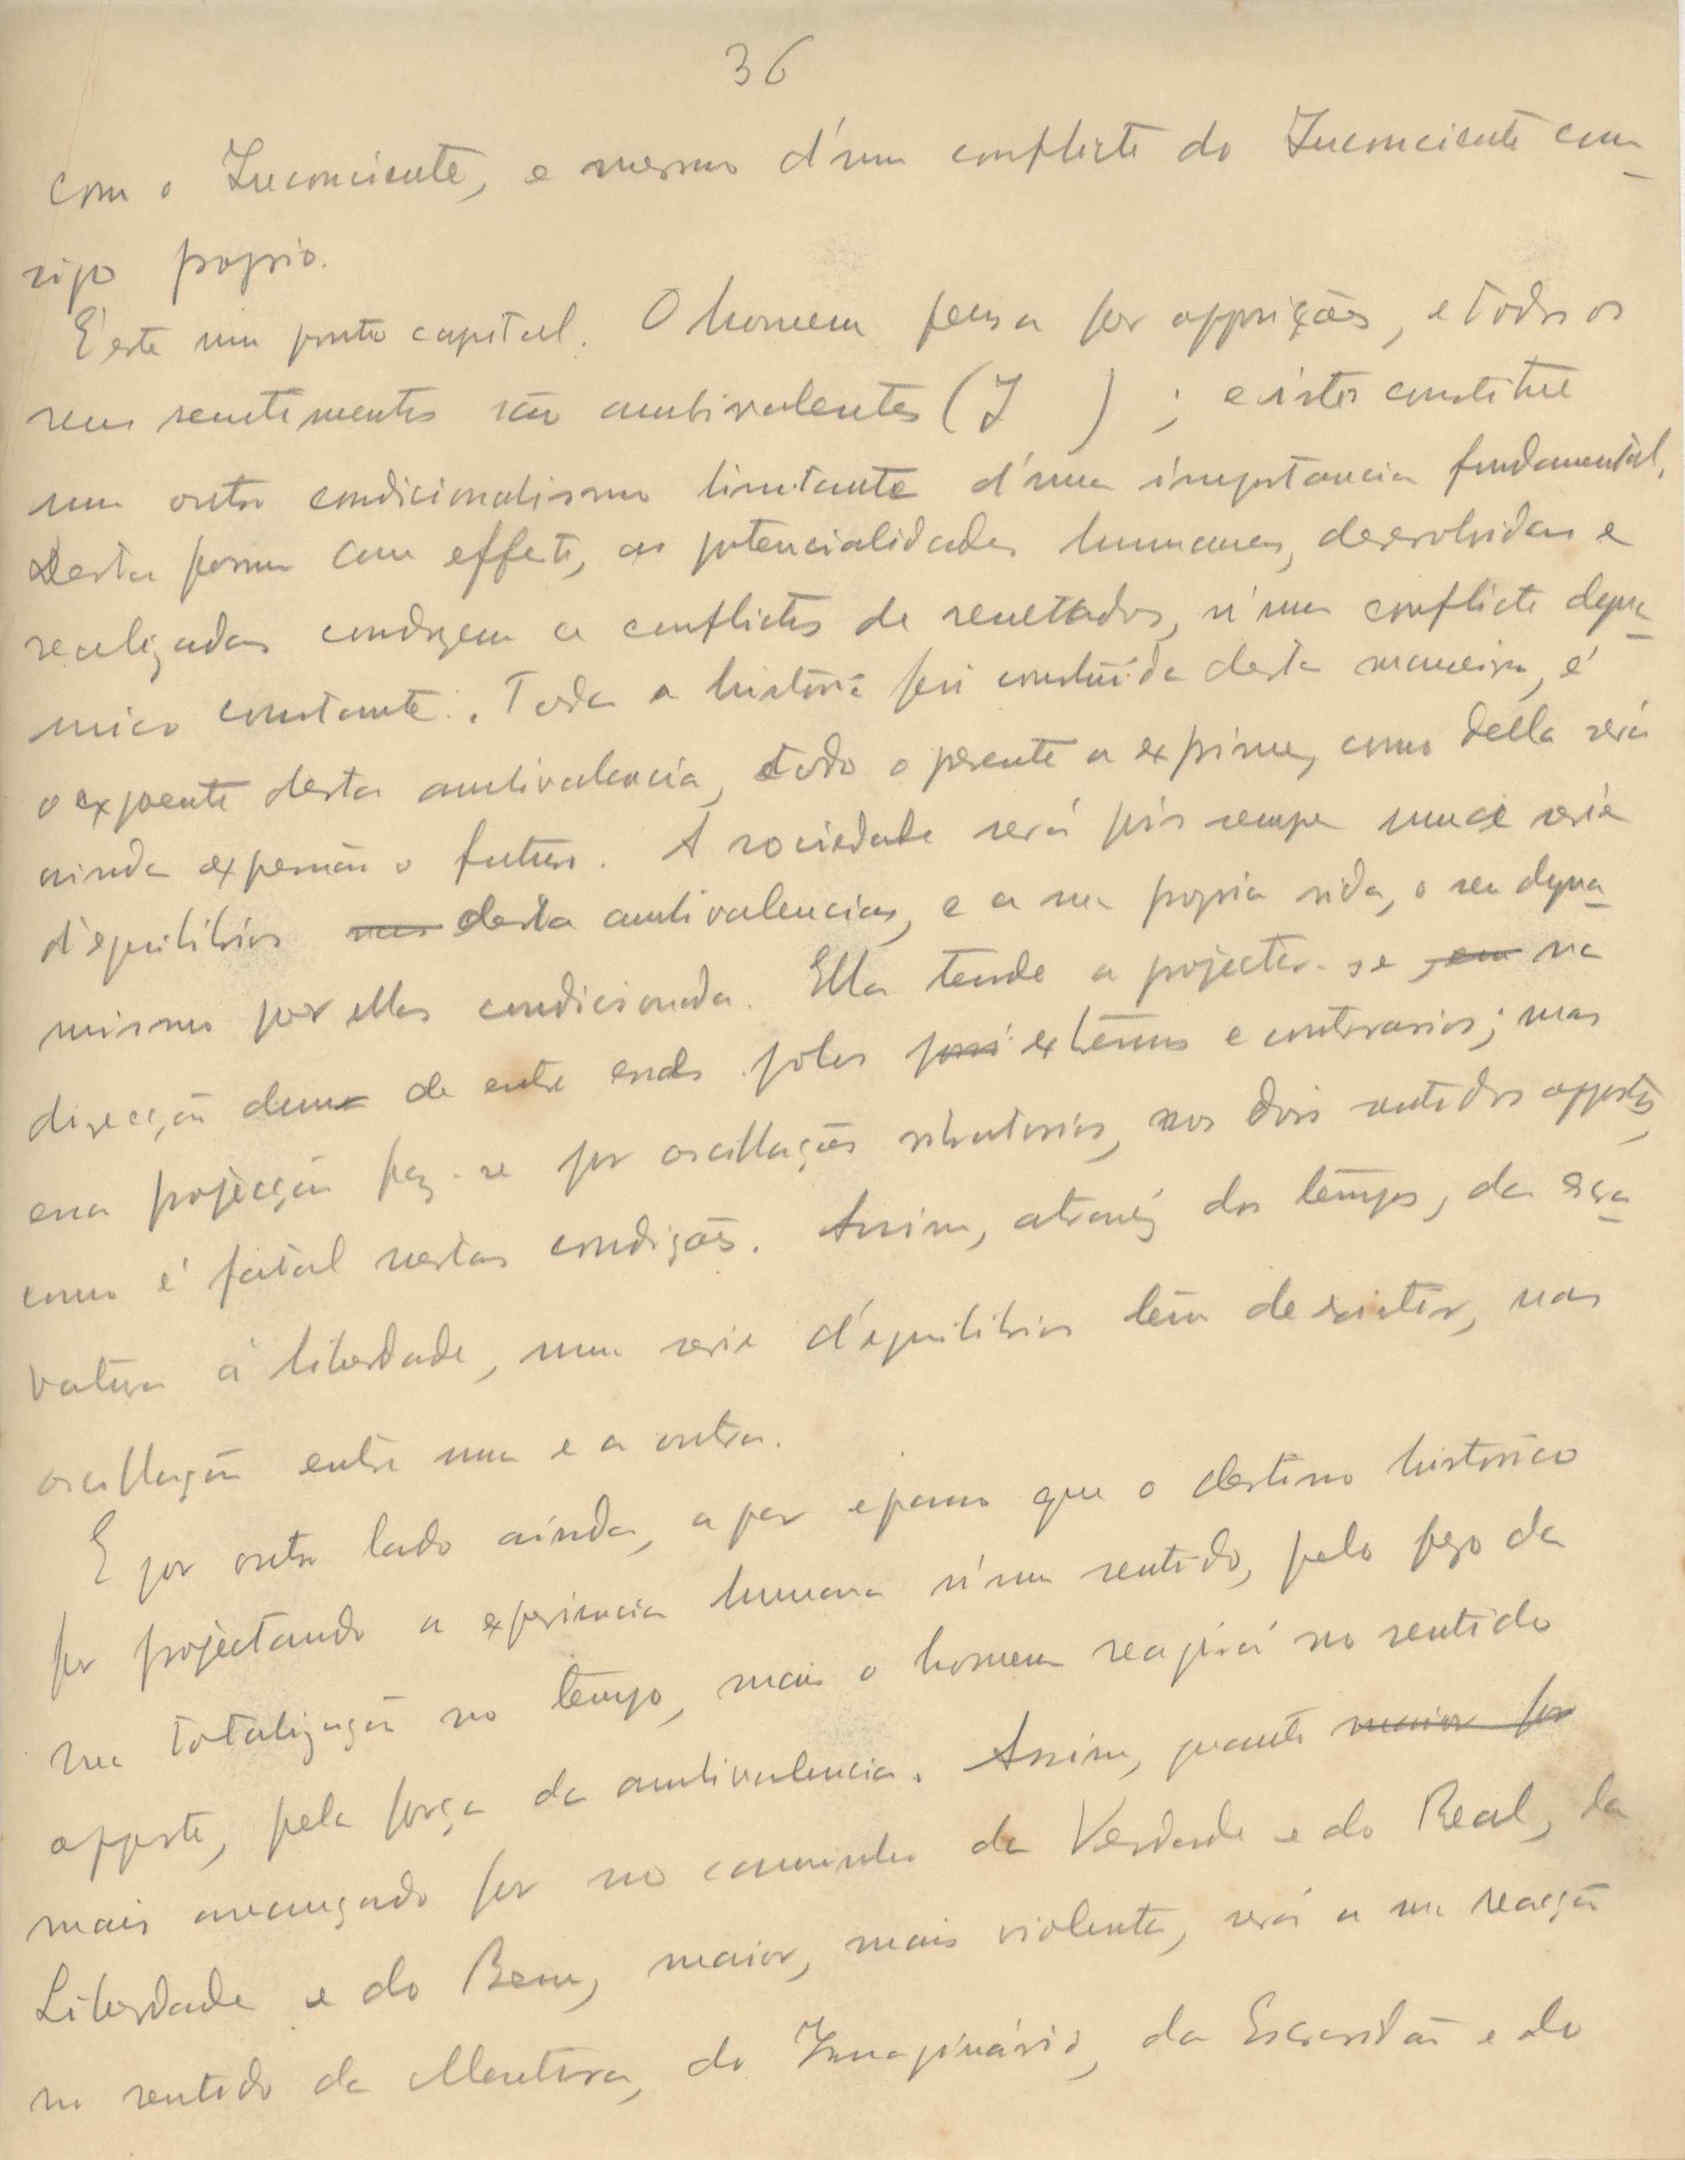 36
com o Inconciente, e mesmo d'um conflicto do Inconciente com_
sigo proprio.
É este um ponto capital. O homem pensa por opposições, e todos os
seus sentimentos são ambivalentes (I      ) ; e isto constitue
um outro condicionalismo limitante d'uma importancia fundamental.
Desta forma com effeito, as potencialidades humanas, desenvolvidas e
realizadas conduzem a conflictos de resultados, n'um conflicto dyna_
mico constante. Toda a história foi construída desta maneira, é
o expoente desta ambivalencia, e todo o presente a exprime, como della será
ainda expressão o futuro. A sociedade será pois sempre uma serie
d'equilibrios desta ambivalencias, e a sua propria vida, o seu dyna_
mismo por ellas condicionada. Ella tende a projectar-se na
direcção duma de entre esses polos extremos e contrarios; mas
essa projecção faz-se por oscillações vibratorias, nos dois sentidos oppostos,
como é fatal nestas condições. Assim, através dos tempos, da escra_
vatura á liberdade, uma serie d'equilibrios têm de existir, nas
oscillação entre uma e a outra.
E por outro lado ainda, a par e passo que o destino histórico
fôr projectando a experiencia humana n'um sentido, pelo peso da
sua totalização no tempo, mais o homem reagirá no sentido
opposto, pela força da ambivalencia. Assim, quanto maior for
mais avançado for no caminho da Verdade e do Real, da
Liberdade e do Bem, maior, mais violenta, será a sua reacção
no sentido da Mentira, do Imaginário, da Escravidão e do